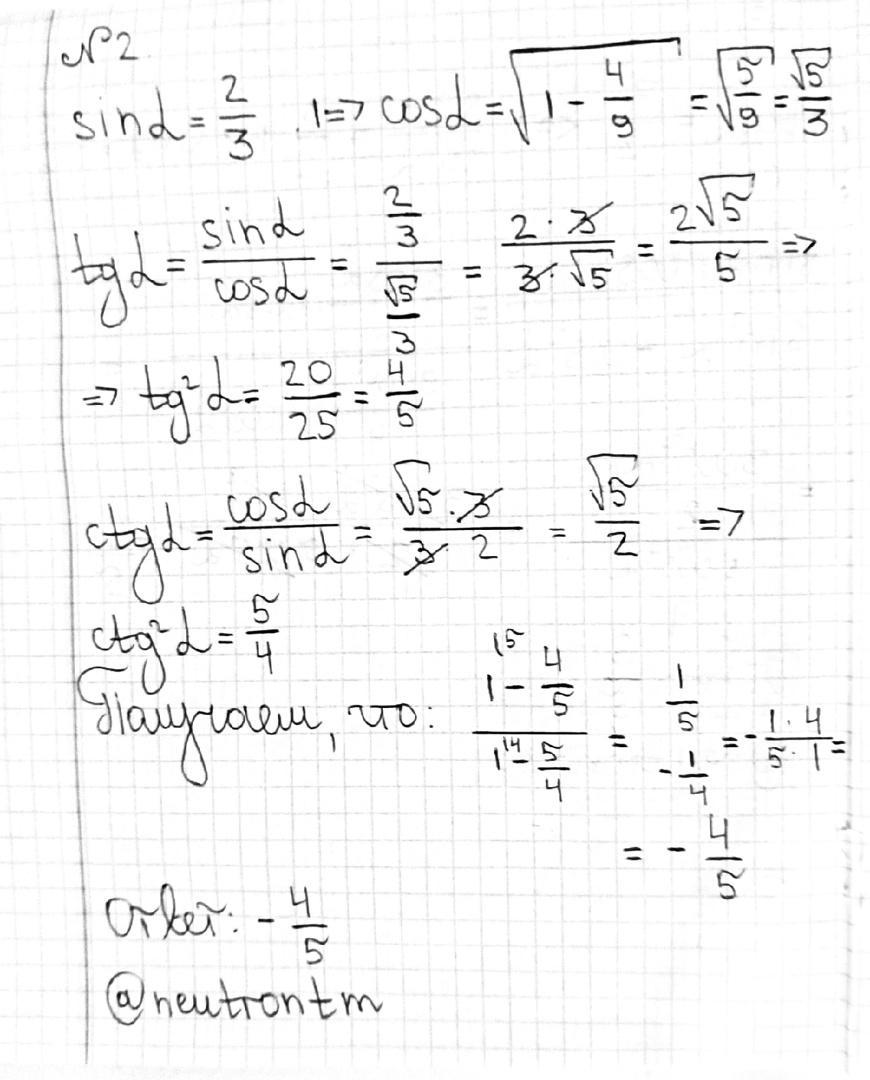 №2
sinα = 2/3 . => cosα = √(1 - 4/9) = √(5/9) = √5/3
tgα = sinα/cosα = (2/3)/(√5/3) = (2·3)/(3·√5) = 2√5/5 =>
=> tg²α = 20/25 = 4/5
ctgα = cosα/sinα = (√5·3)/(3·2) = √5/2 =>
ctg²α = 5/4
Получаем, что: (1\5 - 4/5)/(1\4 - 5/4) = (1/5)/(-1/4) = -(1·4)/(5·1) =
= - 4/5
Ответ: - 4/5
@neutrontm